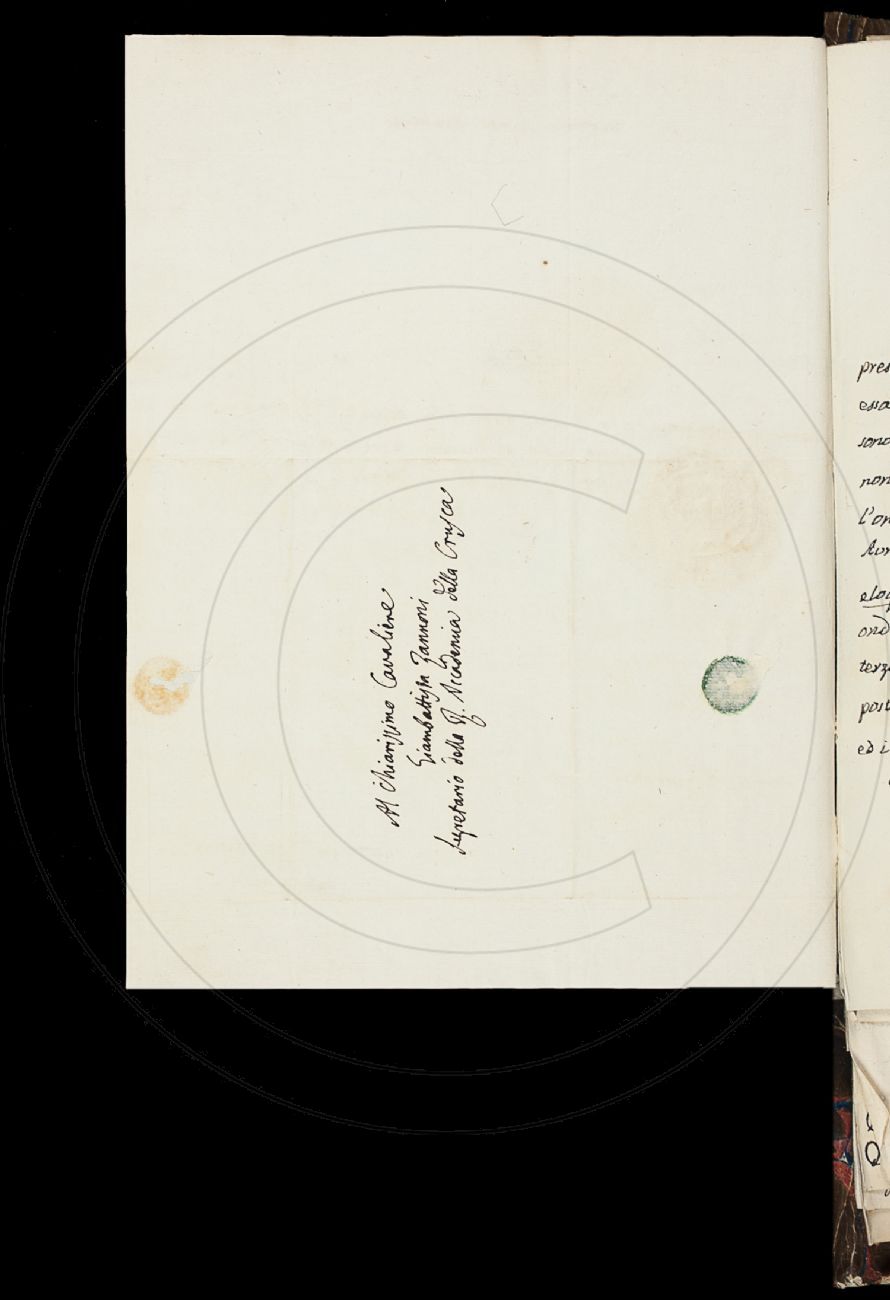 Al Chiarissimo Cavaliere
Giambattista Zannoni
Segretario della R. Accademia della Crusca
pres
essa
sono
non
l'on
elo
ond
terz
post
ed i